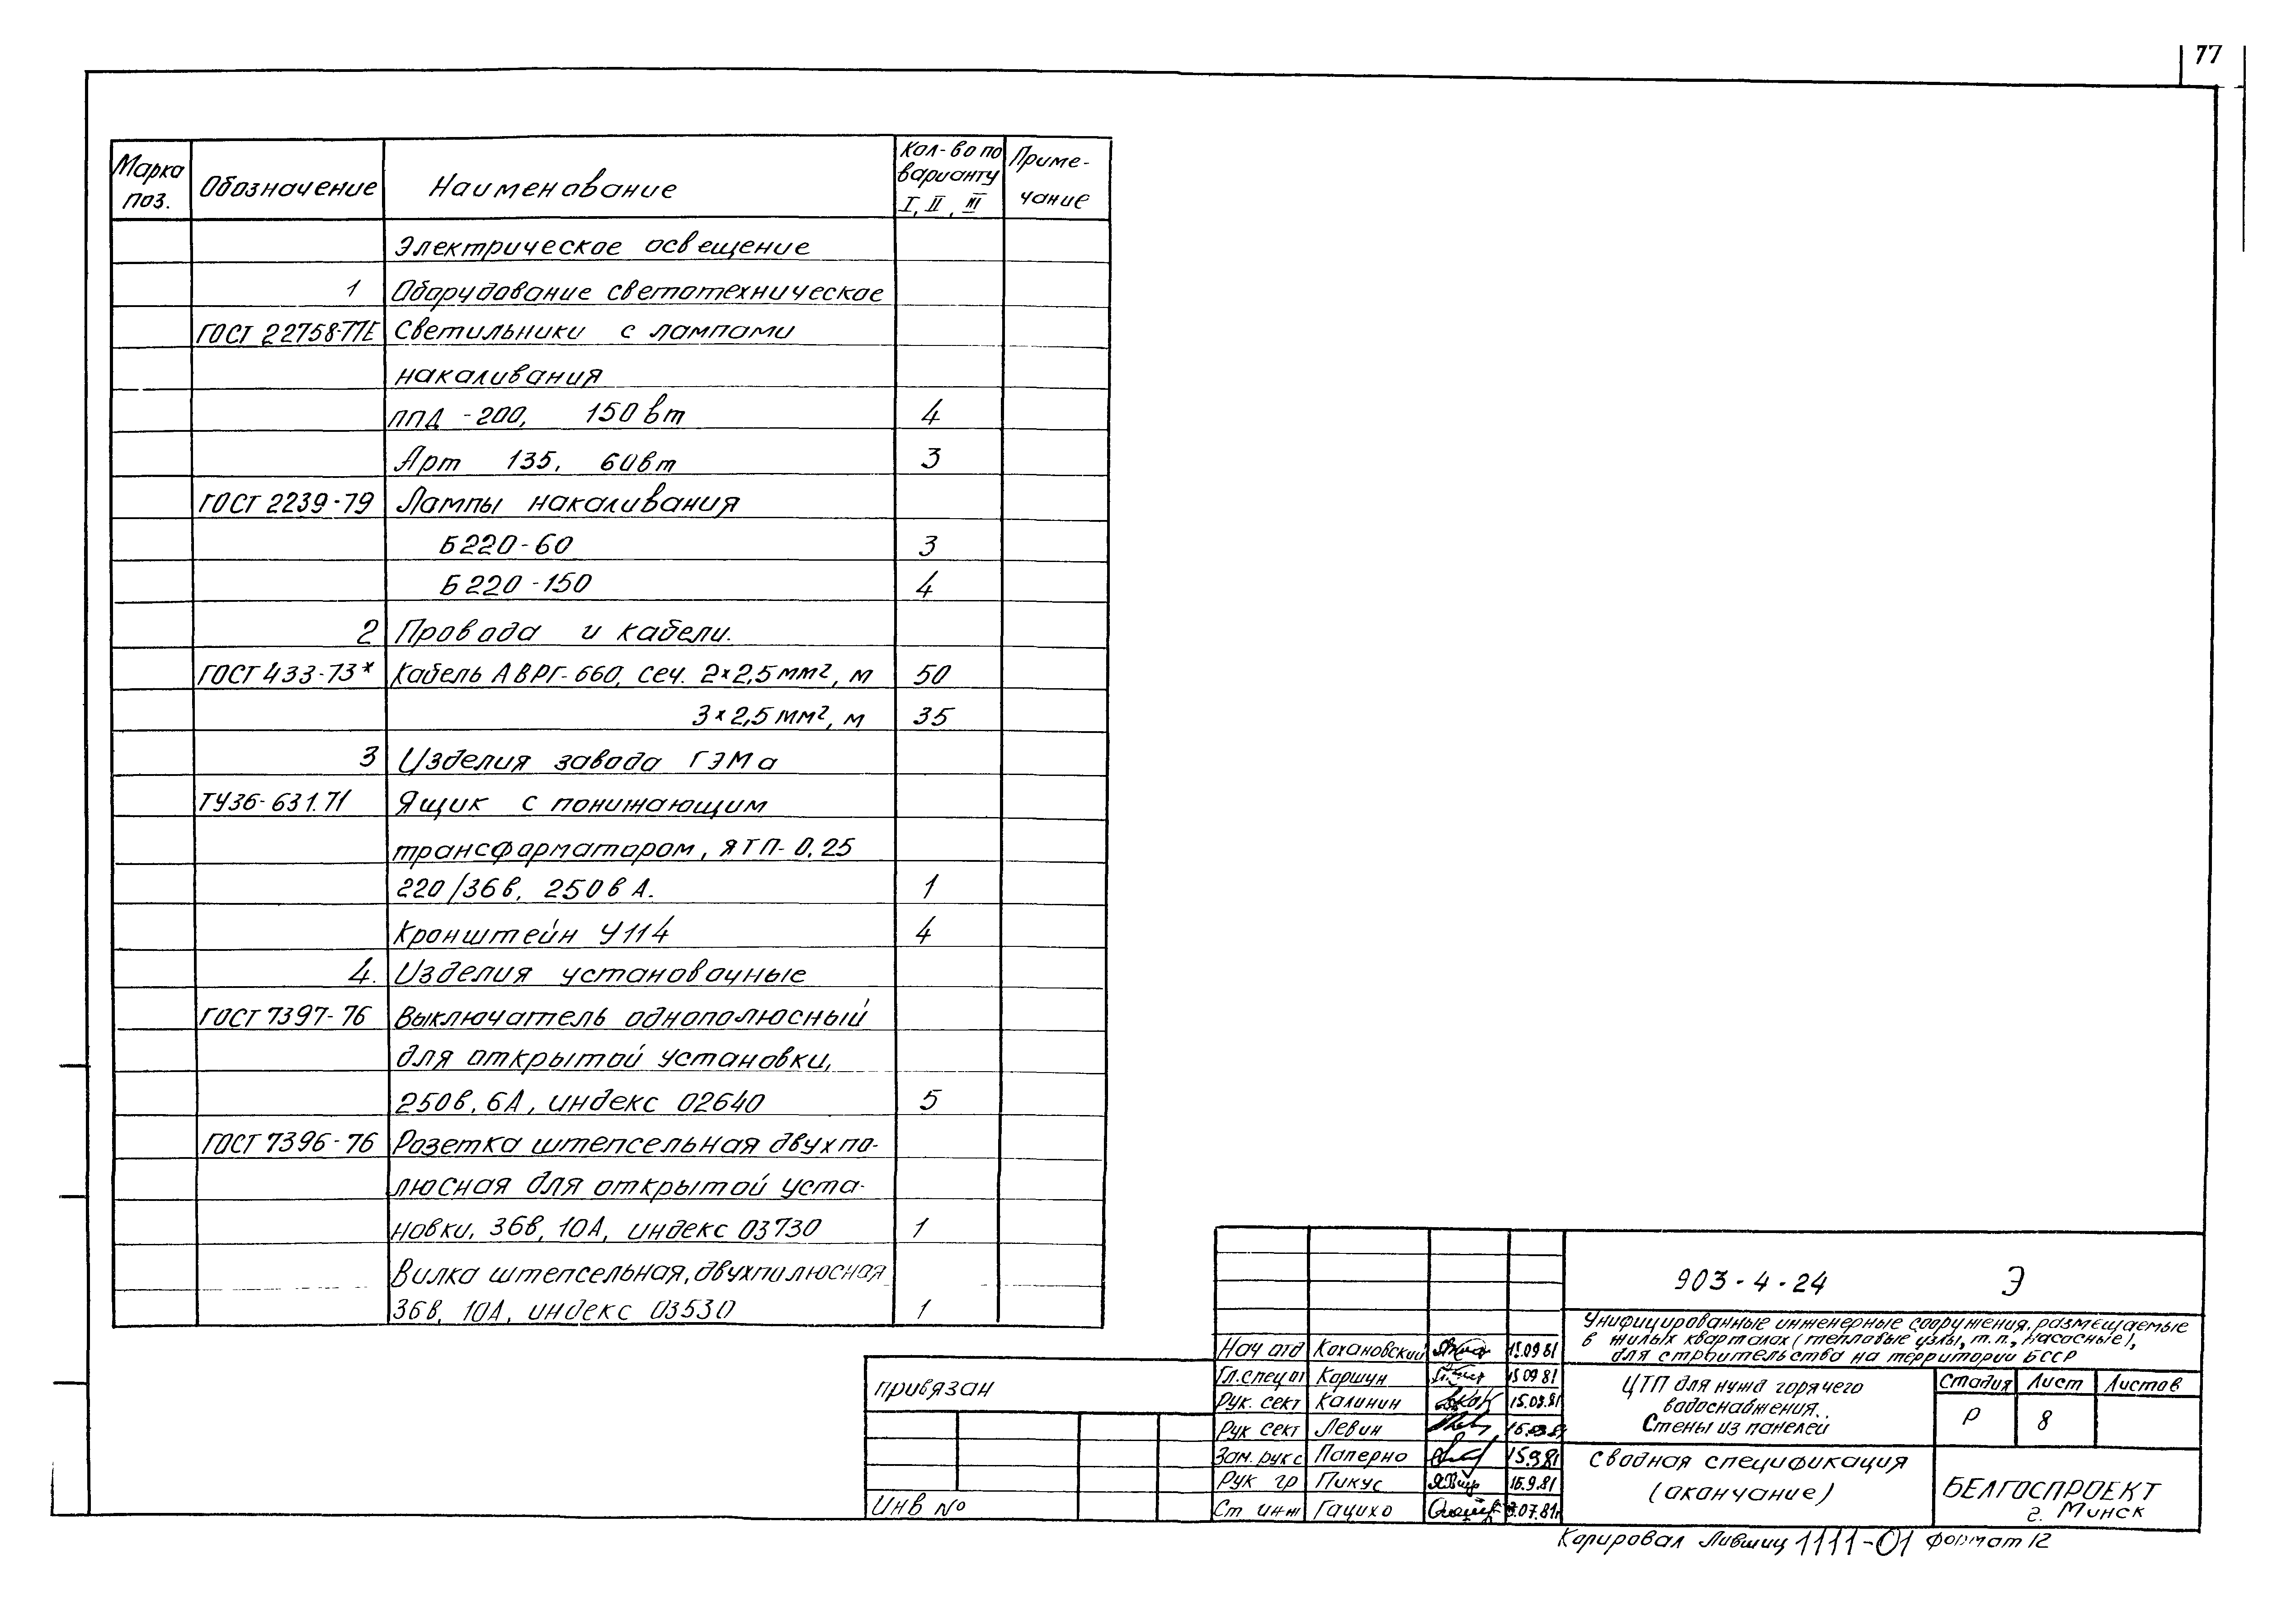 77
Марка поз. Обозначение Наименование Кол-во по варианту I, II, III Примечание
Электрическое освещение
1 Оборудование светотехническое
ГОСТ 22758-77Е Светильники с лампами
накаливания
ППД -200, 150вт 4
Арт 135, 60вт 3
ГОСТ 2239-79 Лампы накаливания
Б220-60 3
Б220-150 4
2 Провода и кабели.
ГОСТ 433-73* Кабель АВРГ-660, сеч. 2×2,5мм², м 50
3×2,5мм², м 35
3 Изделия завода ГЭМа
ТУ36-631.71 Ящик с понижающим
трансформатором, ЯТП-0,25
220/36в, 250вА. 1
Кронштейн У114 4
4. Изделия установочные
ГОСТ 7397-76 Выключатель однополюсный
для открытой установки,
250в, 6А, индекс 02640 5
ГОСТ 7396-76 Розетка штепсельная двухпо-
люсная для открытой уста-
новки, 36в, 10А, индекс 03730 1
Вилка штепсельная, двухполюсная
36в, 10А, индекс 03530 1
903-4-24 Э
Унифицированные инженерные сооружения, размещаемые
в жилых кварталах (тепловые узлы, т.п., насосные),
для строительства на территории БССР
Нач отд Кохановский 15.09 81
Гл.спец от Коршун 15 09 81
Рук. сект Калинин 15.09.81
Рук сект Левин
Зам. рук с Паперно 15.9.81
Рук гр Пикус 15.9.81
Ст инж Гацихо
ЦТП для нужд горячего
водоснабжения.
Стены из панелей
Стадия Лист Листов
Р 8
Сводная спецификация
(окончание)
БЕЛГОСПРОЕКТ
г. Минск
привязан
Инв №
Копировал Лившиц 1111-01 формат 12